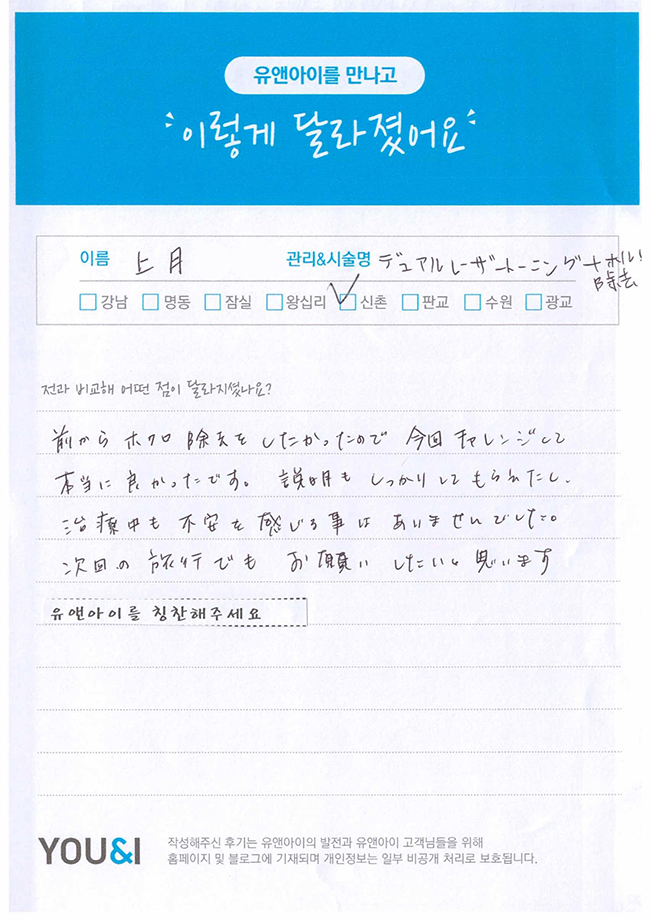 유앤아이를 만나고
이렇게 달라졌어요
이름 上月 관리&시술명 デュアルレーザートーニング+ホクロ
除去
강남 명동 잠실 왕십리 신촌 판교 수원 광교
전과 비교해 어떤 점이 달라지셨나요?
前からホクロ除去をしたかったので今回チャレンジして
本当に良かったです。説明もしっかりしてもらえたし、
治療中も不安を感じる事はありませんでした。
次回の旅行でもお願いしたいと思います
유앤아이를 칭찬해주세요
YOU&I
작성해주신 후기는 유앤아이의 발전과 유앤아이 고객님들을 위해
홈페이지 및 블로그에 기재되며 개인정보는 일부 비공개 처리로 보호됩니다.